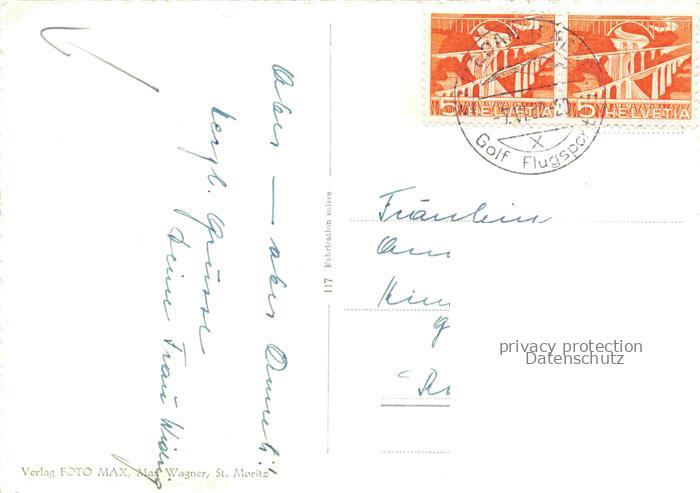 Aber — aber Anneli!!
herzl. Grüsse
deine Frau Widrig
Verlag FOTO MAX, Max Wagner, St. Moritz
117 Fabrication suisse
5 HELVETIA
5 HELVETIA
Golf Flugsport
Fräulein
privacy protection
Datenschutz